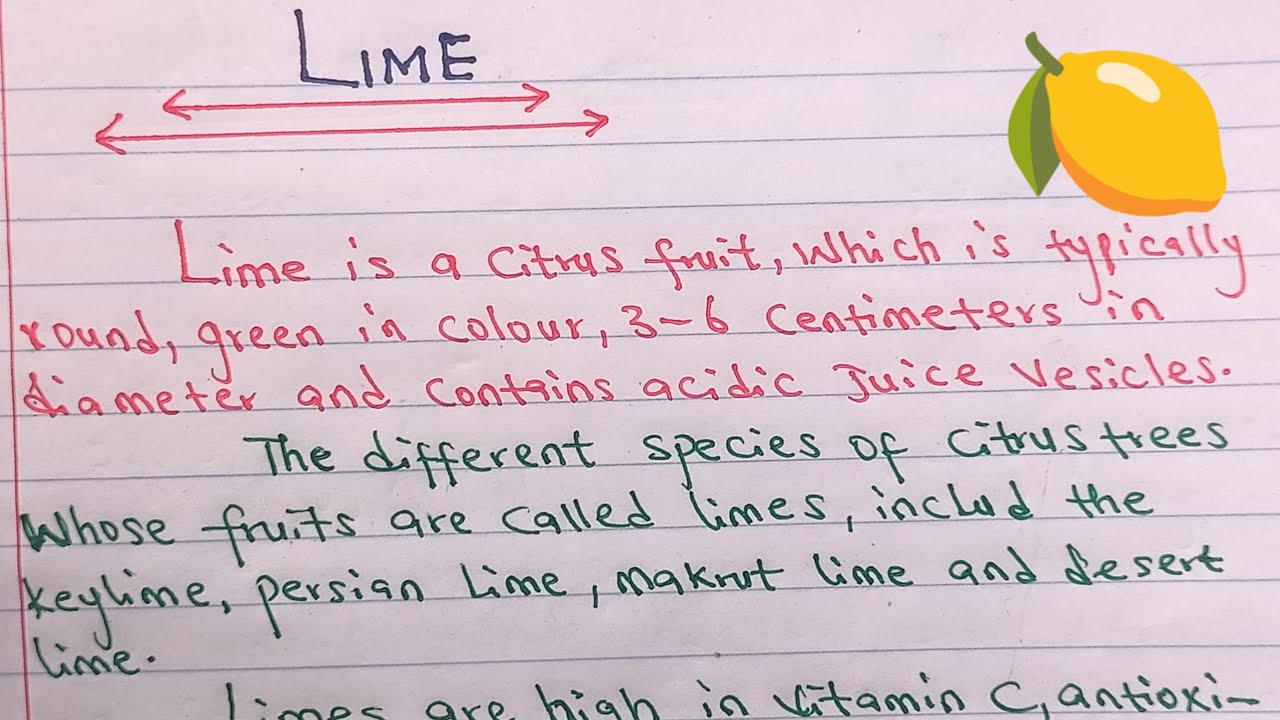 LIME
Lime is a citrus fruit, which is typically
round, green in colour, 3-6 centimeters in
diameter and contains acidic Juice vesicles.
The different species of citrus trees
whose fruits are called limes, includ the
keylime, persian lime, makrut lime and desert
lime.
Limes are high in vitamin C, antioxi-